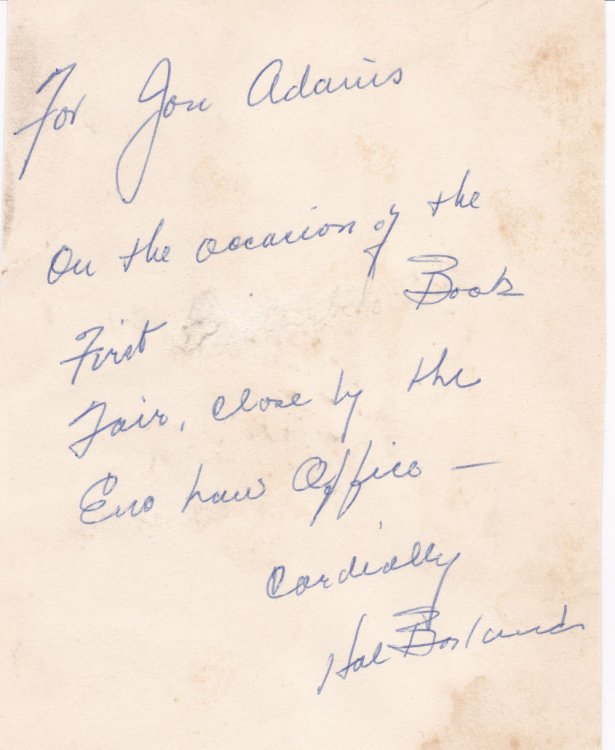 For Jon Adams
On the occasion of the
First Book
Fair, close by the
Eno Law Office —
Cordially
Hal Borland